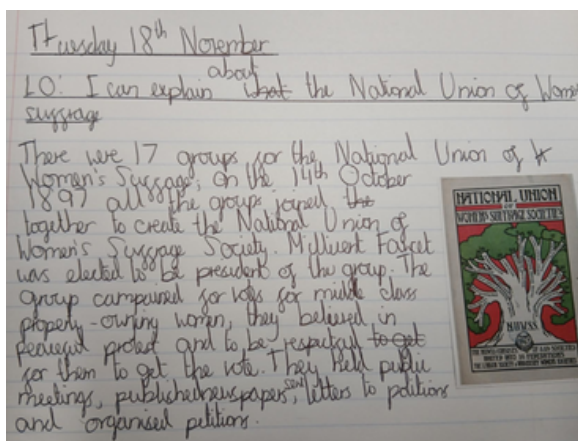 Tuesday 18th November
about
LO: I can explain what the National Union of Women
suffrage
There were 17 groups for the National Union of
Women's Suffrage, on the 14th October
1897 all the groups joined the
together to create the National Union of
Women's Suffrage Society. Millivent Faucet
was elected to be president of the group. The
group campained for vots for middle class
property-owning women, they believed in
peaceful protest and to be respectful to get
for them to get the vote. They held public
meetings, published newspapers, send letters to politions
and organised petitions.
NATIONAL UNION
OF
WOMEN'S SUFFRAGE SOCIETIES
N.U.W.S.S.